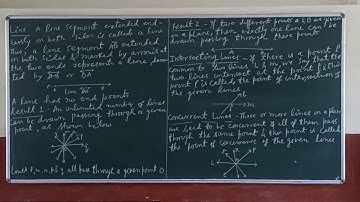 Line - A line segment extended end-
lessly on both sides is called a line
Thus, a line segment AB extended
on both sides & marked by arrows at
the two ends represents a line deno-
ted by AB or BA
A Line B
A line has no end points
Result 1 - An unlimited number of lines
can be drawn passing through a given
point, as shown below
Lines l, m, n, p & q all pass through a given point O
Result 2 - If two different points A & B are given
in a plane, then exactly one line can be
drawn passing through these points
A B
Intersecting lines - If there is a point P
common to two lines l & m, we say that the
two lines intersect at the point P & this
point P is called the point of intersection of
the given lines
Concurrent Lines - Three or more lines in a plane
are said to be concurrent if all of them pass
through the same point & this point is called
the point of concurrence of the given lines